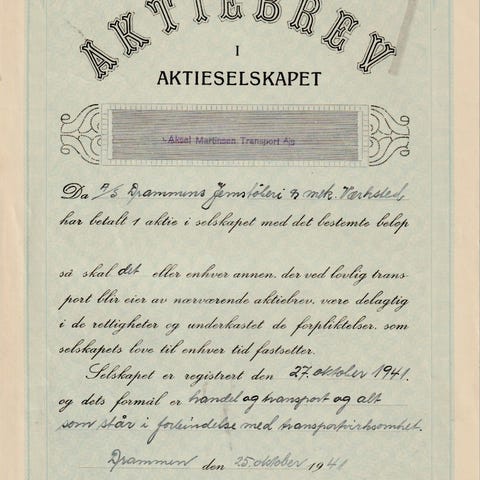 AKTIEBREV
I
AKTIESELSKAPET
Aksel Martinsen Transport A/s
Da A/S Drammens Jernstøberi & mek. Værksted,
har betalt 1 aktie i selskapet med det bestemte beløp
så skal det eller enhver annen, der ved lovlig trans-
port blir eier av nærværende aktiebrev, være delagtig
i de rettigheter og underkastet de forpliktelser, som
selskapets love til enhver tid fastsetter.
Selskapet er registrert den 27. oktober 1941.
og dets formål er handel og transport og alt
som står i forbindelse med transportvirksomhet.
Drammen den 25. oktober 1941